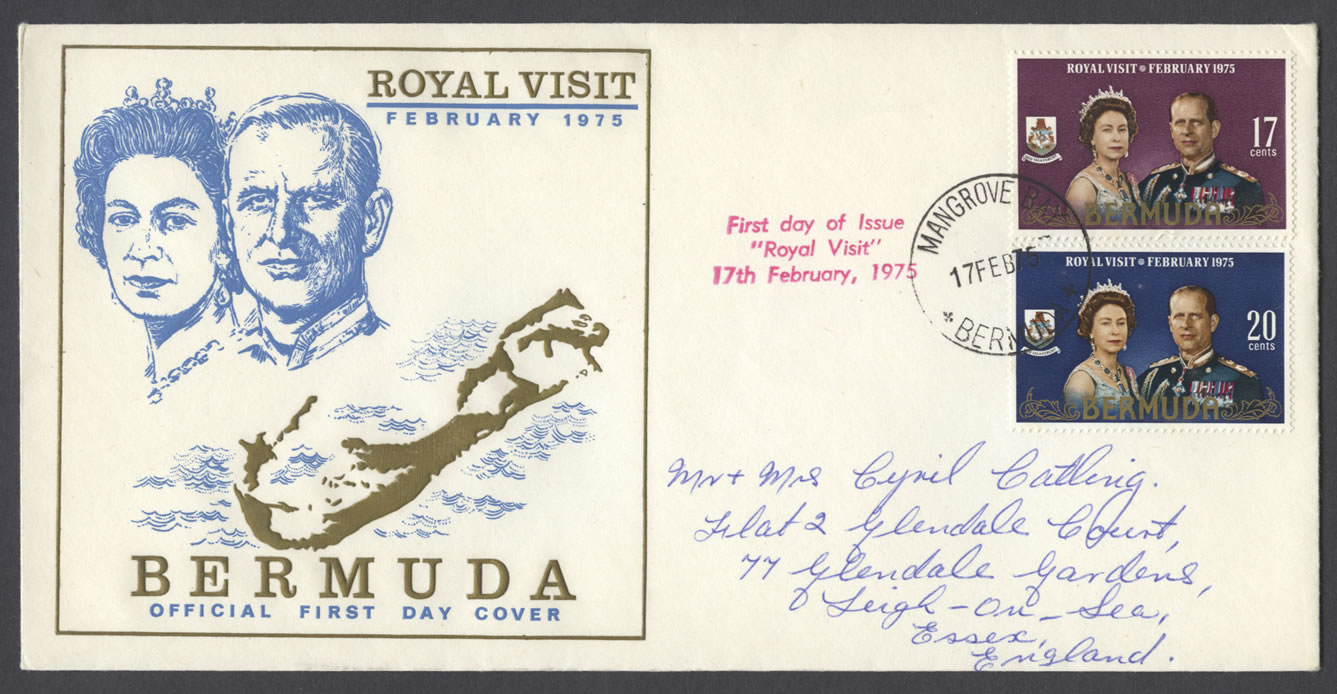 ROYAL VISIT
FEBRUARY 1975
BERMUDA
OFFICIAL FIRST DAY COVER
First day of Issue
"Royal Visit"
17th February, 1975
MANGROVE
17 FEB 75
BERMUDA
ROYAL VISIT FEBRUARY 1975
17
cents
BERMUDA
ROYAL VISIT FEBRUARY 1975
20
cents
BERMUDA
Mr + Mrs Cyril Catling.
Flat 2 Glendale Court,
77 Glendale Gardens,
Leigh-on-Sea,
Essex,
England.